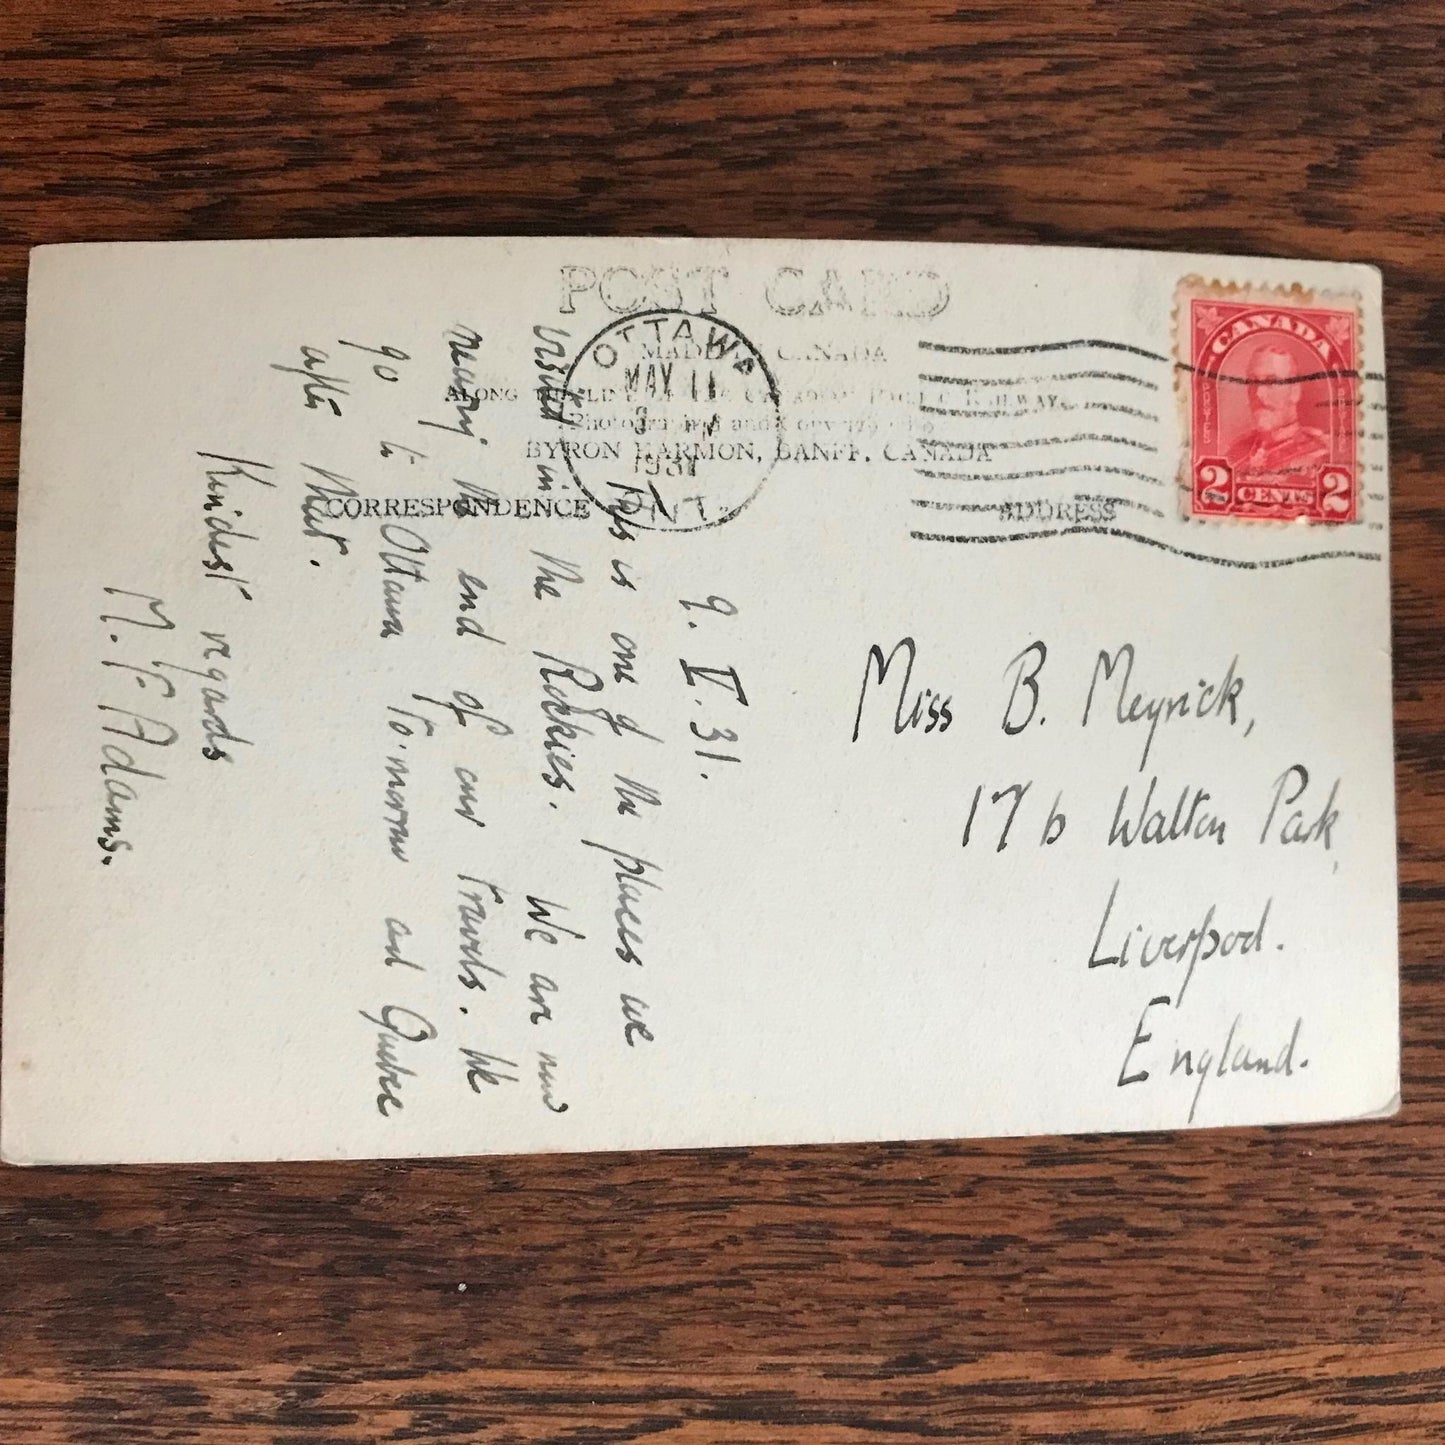 POST CARD
MADE IN CANADA
ALONG THE LINE OF THE CANADIAN PACIFIC RAILWAY
Photographed and Copyrighted
BYRON HARMON, BANFF, CANADA
CORRESPONDENCE
ADDRESS
OTTAWA
MAY 11
1931
ONT
CANADA
POSTES
2 CENTS 2
9. V. 31.
This is one of the places we
visited in the Rockies. We are now
nearing the end of our travels. We
go to Ottawa to-morrow and Quebec
after that.
Kindest regards
M. F. Adams.
Miss B. Meyrick,
17b Walton Park,
Liverpool.
England.